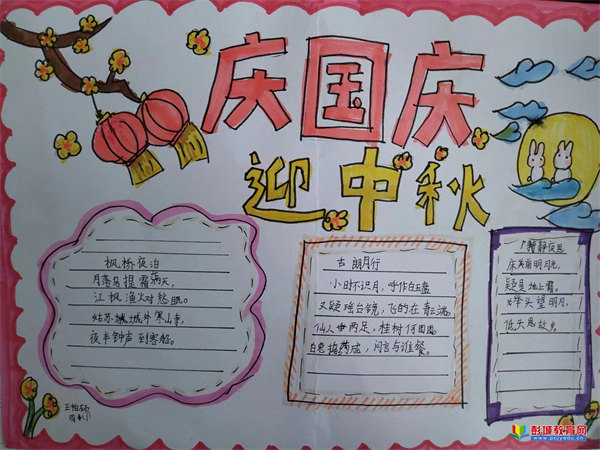 庆国庆
迎中秋
枫桥夜泊
月落乌提霜满天
江枫渔火对愁眠。
姑苏城城外寒山寺,
夜半钟声到客船。
古朗月行
小时不识月,呼作白玉盘
又疑瑶台镜,飞的在青
仙人垂两足,桂树何团团。
白兔捣药成,问言与谁餐。
静夜思
床前明月光,
疑是地上霜。
举头望明月,
低头思故乡。
彭城教育网
www.pcjyedu.cn